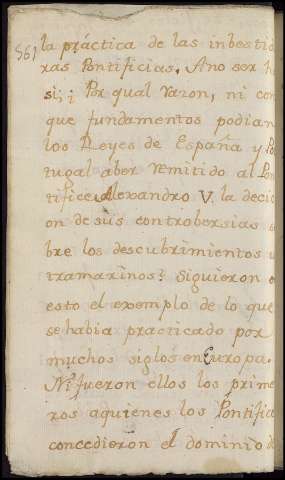 561
la práctica de las inbestidu
ras Pontificias. Ano ser h
si; ¿Por qual razon, ni con
que fundamentos podian
los Reyes de España y Po
tugal aber remitido al Pon
tifice Alexandro V. la decis
on de sus controbersias s
bre los descubrimientos u
tramarinos? Siguieron e
esto el exemplo de lo que
se habia practicado por
muchos siglos en Europa.
No fueron ellos los prime
ros aquienes los Pontifices
concedieron el dominio d